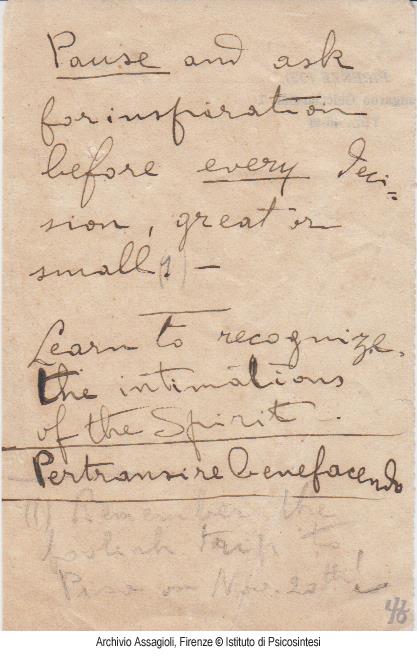 Pause and ask
for inspiration
before every deci=
sion, great or
small (1) —
Learn to recognize
the intimations
of the Spirit.
Pertransire benefacendo
(1) Remember the
foolish trip to
Pisa on Nov. 20th!
46
FIRENZE
Archivio Assagioli, Firenze © Istituto di Psicosintesi